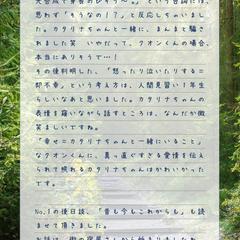 大合戦で身長のびそう〜。」という台詞には、
思わず「そうなの！？」と反応しちゃいまし
た。カタリナちゃんと一緒に、まんまと騙さ
れました笑　いやだって、クオンくんの場合、
本当にありそうで…！
その後判明した、「怒ったり泣いたりする＝
即不幸」という考え方は、人間見習い1年生
らしいなぁと思いました。カタリナちゃんの
表情を窺いながら話すところは、なんだか微
笑ましいですね。
「幸せ＝カタリナちゃんと一緒にいること」
なクオンくんに、真っ直ぐすぎる愛情を伝え
られて照れるカタリナちゃんはかわいかった
です。
No.1の後日談、「昔も今もこれからも」も読
ませて頂きました。